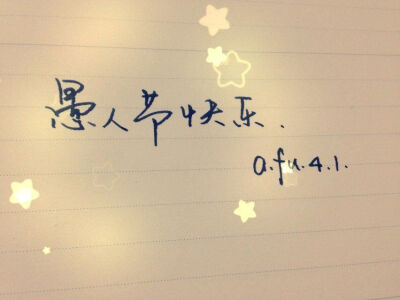 愚人节快乐.
a.fu.4.1.